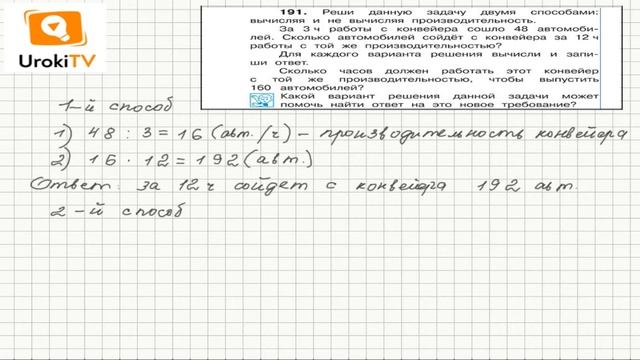 UrokiTV
191. Реши данную задачу двумя способами:
вычисляя и не вычисляя производительность.
За 3 ч работы с конвейера сошло 48 автомоби-
лей. Сколько автомобилей сойдёт с конвейера за 12 ч
работы с той же производительностью?
Для каждого варианта решения вычисли и запи-
ши ответ.
Сколько часов должен работать этот конвейер
с той же производительностью, чтобы выпустить
160 автомобилей?
Какой вариант решения данной задачи может
помочь найти ответ на это новое требование?
1-й способ
1) 48 : 3 = 16 (авт./ч) – производительность конвейера
2) 16 · 12 = 192 (авт.)
Ответ: за 12 ч сойдет с конвейера 192 авт.
2-й способ